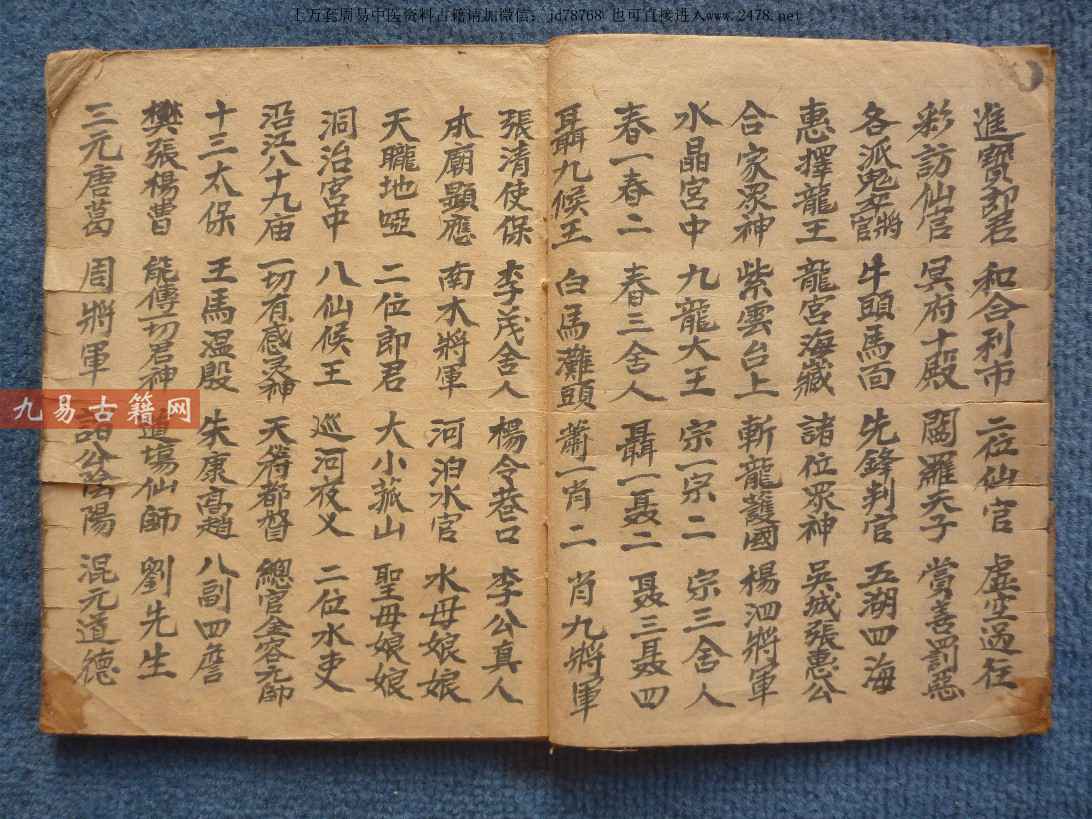 上万套周易中医资料古籍请加微信：jd78768 也可直接进入www.2478.net
進寶郎君 和合利市 二位仙官 虛空過往
彩訪仙官 冥府十殿 閻羅天子 賞善罰惡
各派鬼 將官 牛頭馬面 先鋒判官 五湖四海
惠擇龍王 龍宮海藏 諸位眾神 吳城張惠公
合家眾神 紫雲台上 斬龍護國 楊泗將軍
水晶宮中 九龍大王 宗一宗二 宗三舍人
春一春二 春三舍人 聶一聂二 聂三聂四
聶九候王 白馬灘頭 蕭一肖二 肖九將軍
張清使保 李茂舍人 楊令巷口 李公真人
本廟顯應 南木將軍 河泊水官 水母娘娘
天聾地啞 二位郎君 大小菰山 聖母娘娘
洞治宮中 八仙候王 巡河夜乂 二位水吏
沿江八十九庙 一切有感灵神 天符都督 總官金容元帥
十三太保 王馬温殷 朱康高趙 八副四詹
樊張楊曹 能傳一切君神 道場仙師 劉先生
三元唐葛 周將軍 諸公陰陽 混元道德
九易古籍网